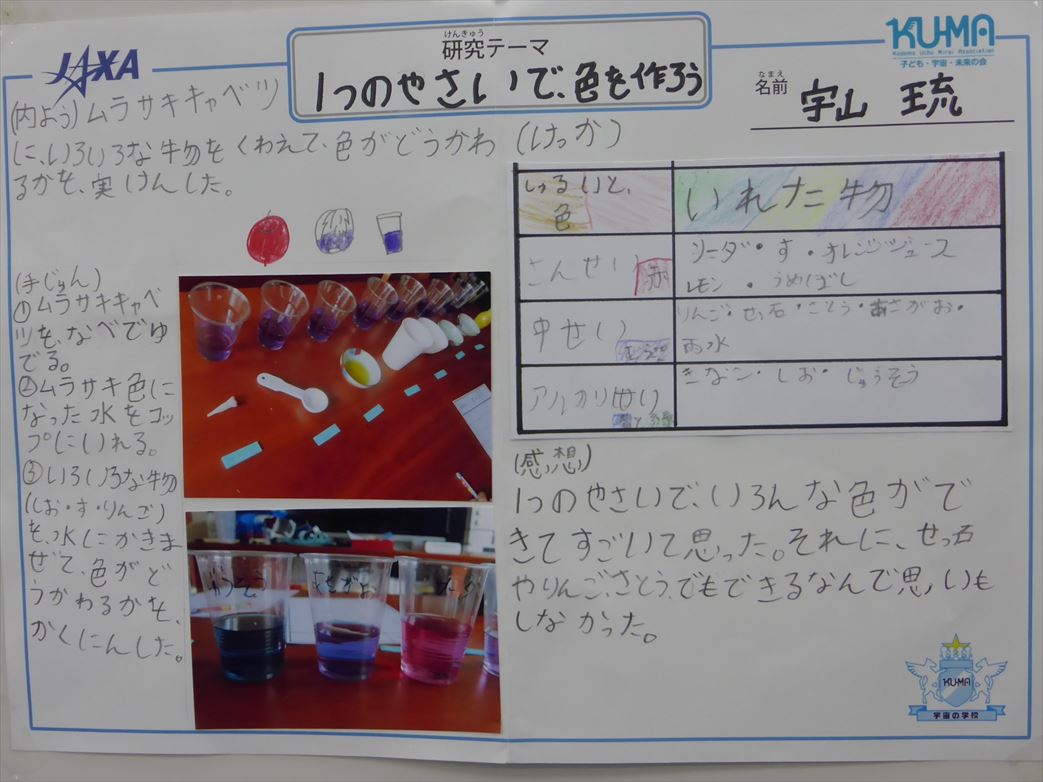 JAXA
けんきゅう
研究テーマ
1つのやさいで、色を作ろう
KU-MA
Kodomo Uchu Mirai Association
子ども・宇宙・未来の会
なまえ
名前
宇山 琉
(内よう)ムラサキキャベツ
に、いろいろな物をくわえて、色がどうかわ
るかを、実けんした。
(手じゅん)
①ムラサキキャベ
ツを、なべでゆ
でる。
②ムラサキ色に
なった水をコッ
プにいれる。
③いろいろな物
(しお・す・りんご)
を、水にかきま
ぜて、色がど
うかわるかを、
かくにんした。
じゅうそう
あさがお
(けっか)
しゅるいと、
色
いれた物
さんせい
赤
ソーダ・す・オレンジジュース
レモン・うめぼし
中せい
りんご・せっ石・さとう・あさがお・
雨水
アルカリせい
きなこ・しお・じゅうそう
(感想)
1つのやさいで、いろんな色がで
きてすごいて思った。それに、せっ石
やりんご、さとう、でもできるなんて思いも
しなかった。
KU-MA
宇宙の学校